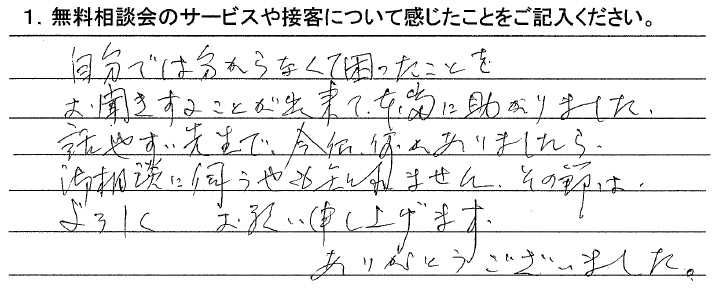 1. 無料相談会のサービスや接客について感じたことをご記入ください。
自分では分からなくて困ったことを
お聞きすることが出来て、本当に助かりました。
話やすい先生で、今后、何かありましたら、
御相談に伺うやも知れません。その節は、
よろしく お願い申し上げます。
ありがとうございました。